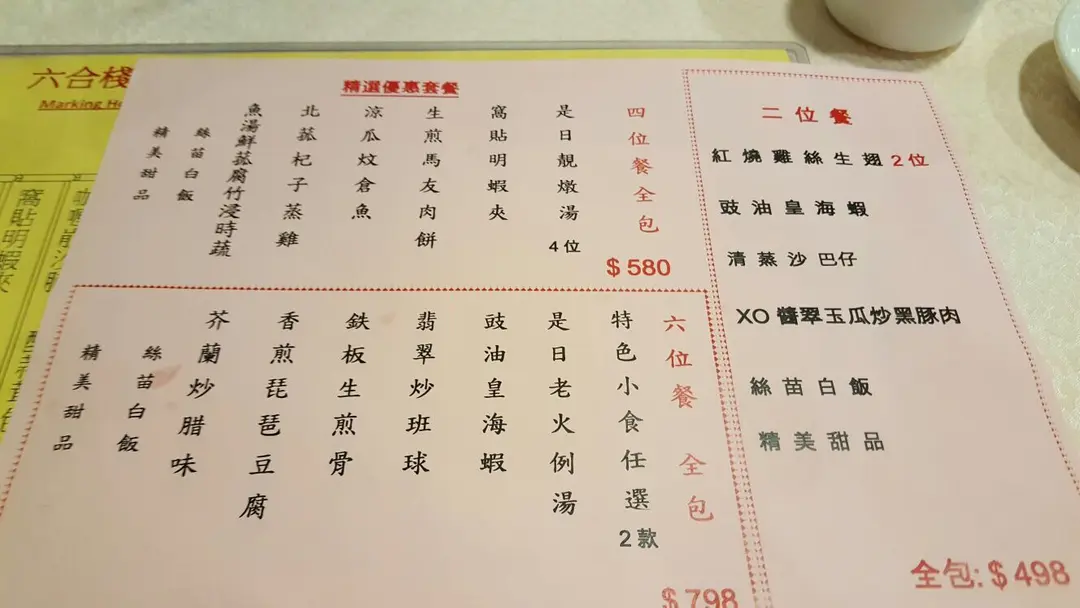 六合棧
Marking Ho
精選優惠套餐
四位餐全包
是日靚燉湯 4位
窩貼明蝦夾
生煎馬友肉餅
涼瓜炆倉魚
北菰杞子蒸雞
魚湯鮮菰腐竹浸時蔬
絲苗白飯
精美甜品
$580
六位餐 全包
特色小食任選2款
是日老火例湯
豉油皇海蝦
翡翠炒班球
鉄板生煎骨
香煎琵琶豆腐
芥蘭炒腊味
絲苗白飯
精美甜品
$798
二位餐
紅燒雞絲生翅2位
豉油皇海蝦
清蒸沙巴仔
XO醬翠玉瓜炒黑豚肉
絲苗白飯
精美甜品
全包:$498
窩貼明蝦夾